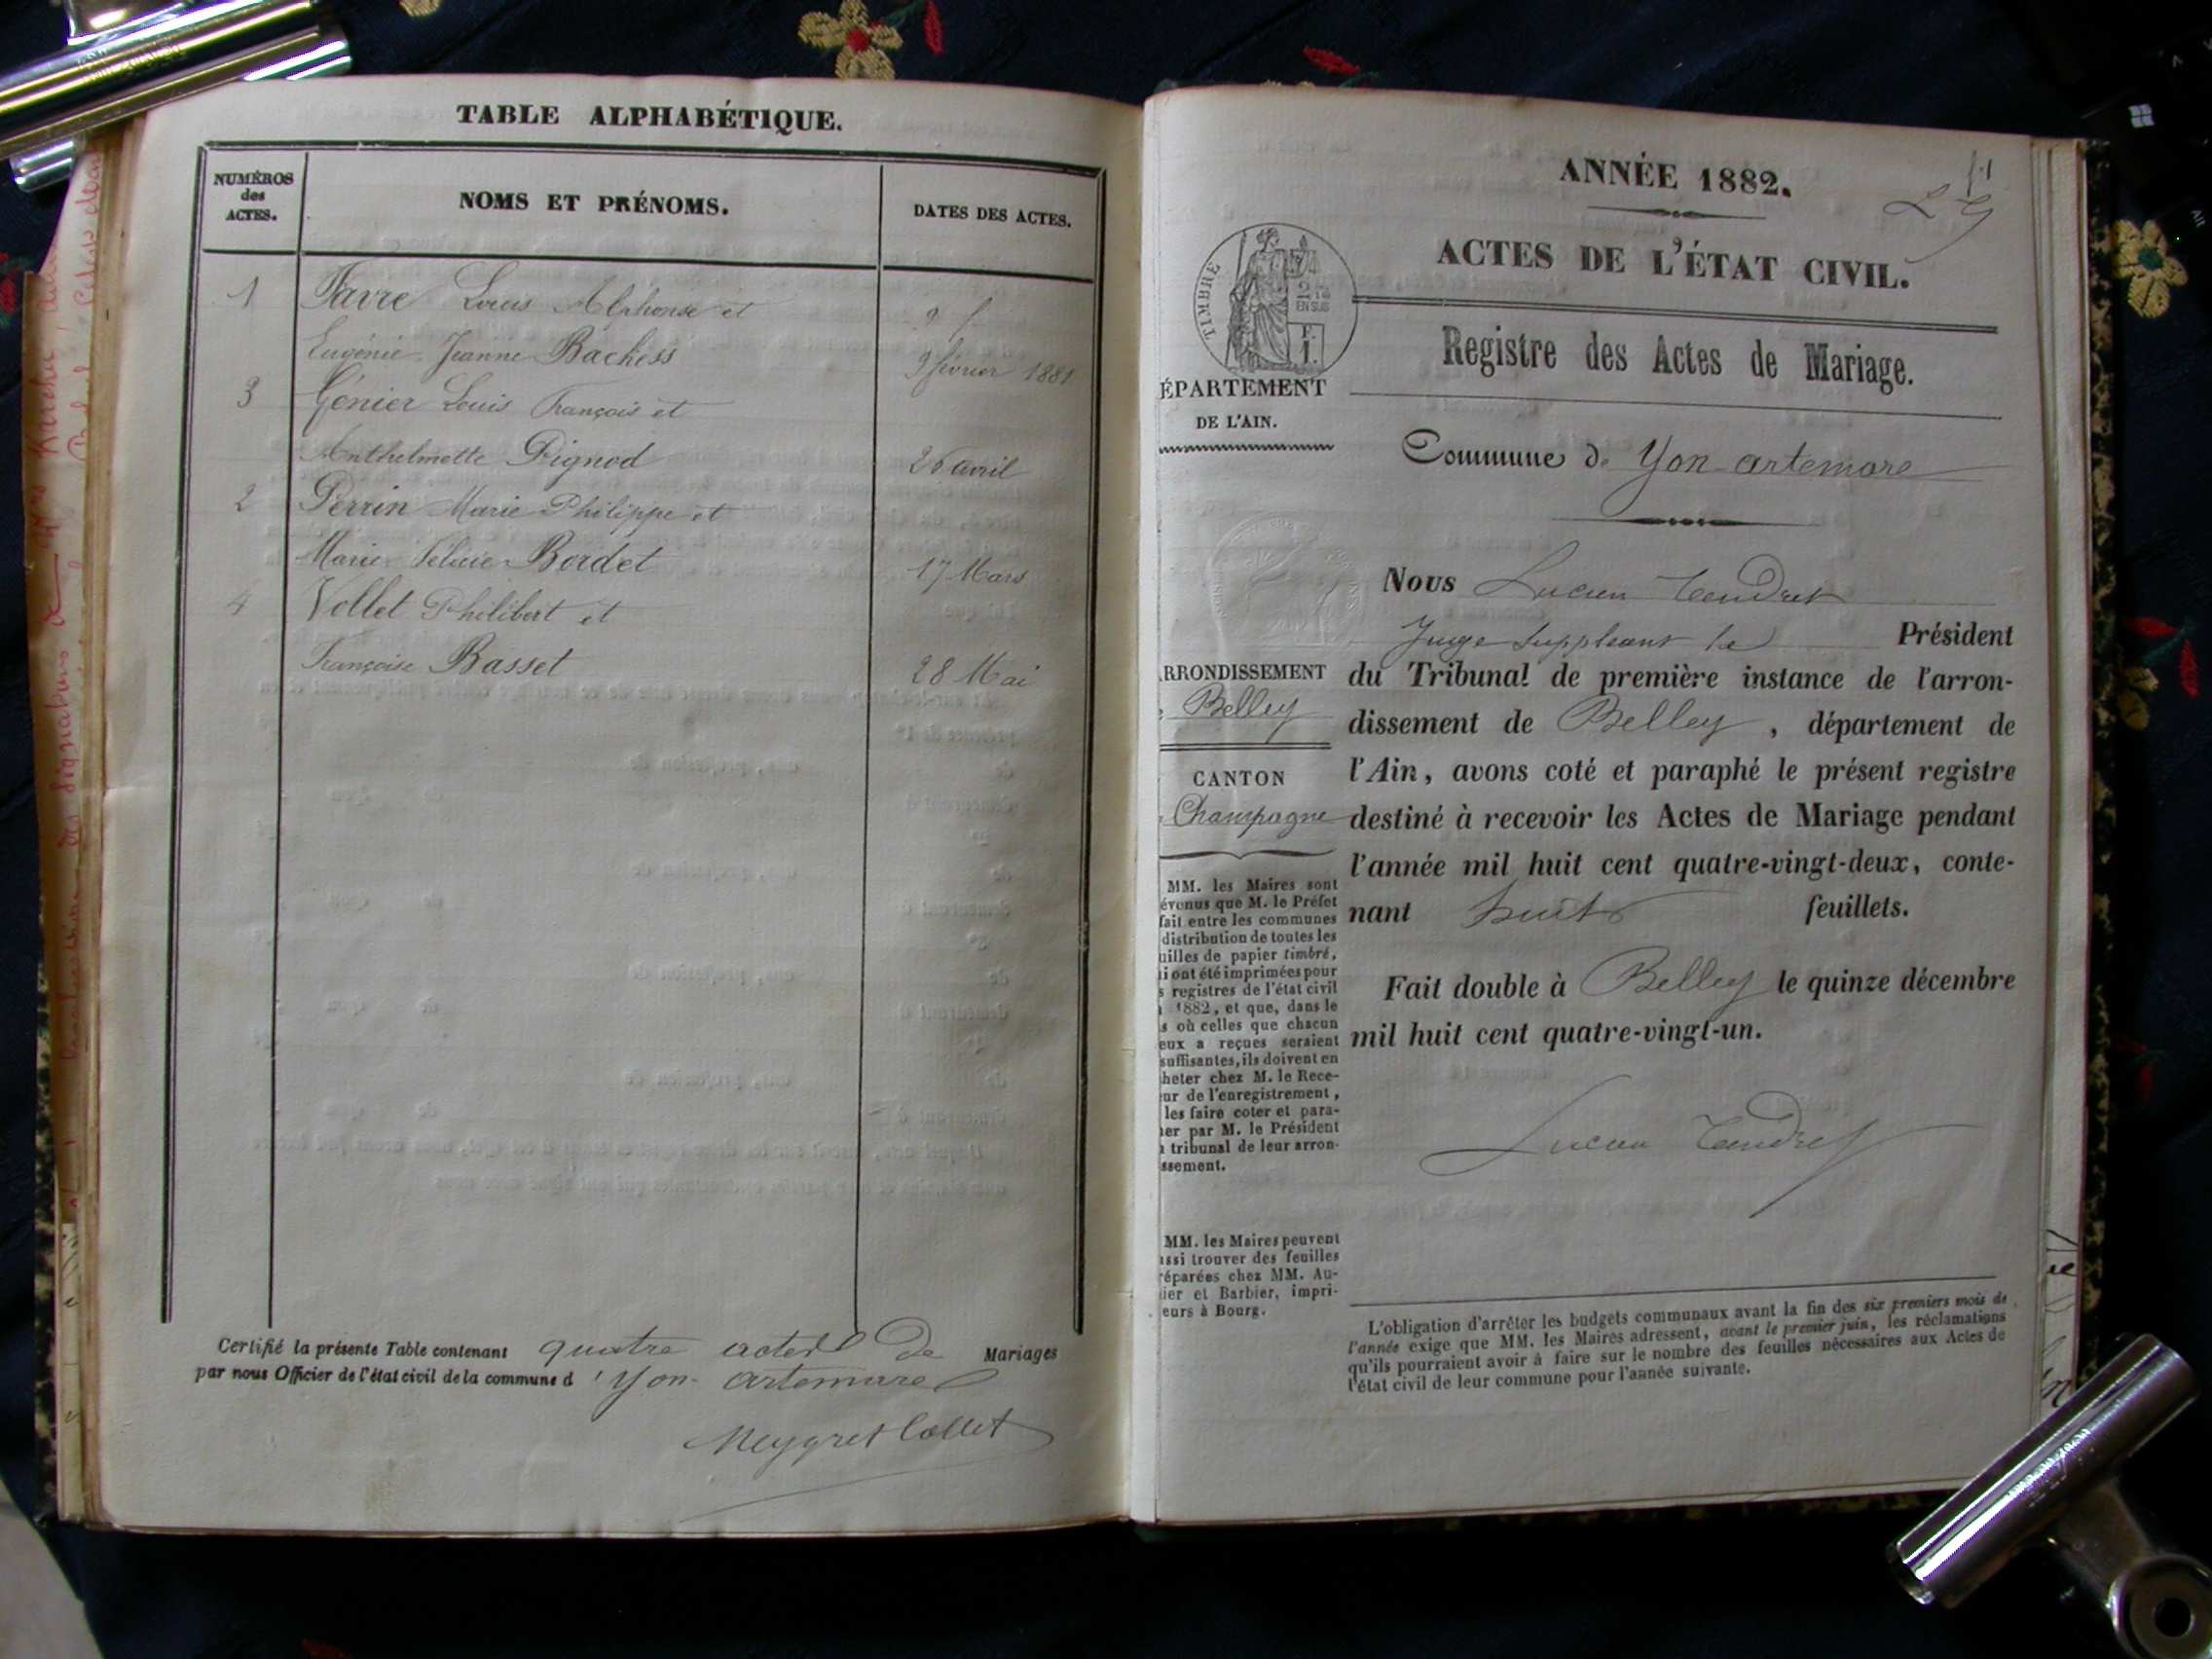 TABLE ALPHABÉTIQUE.
NUMÉROS
des
ACTES.
NOMS ET PRÉNOMS.
DATES DES ACTES.
1 Favre Louis Alphonse et
9 f
Eugénie Jeanne Bachess 9 février 1881
3 Génier Louis François et
Anthelmette Pignod 26 avril
2 Perrin Marie Philippe et
Marie Felicie Bordet 17 Mars
4 Vollet Philibert et
Françoise Basset 28 Mai
Certifié la présente Table contenant quatre actes de Mariages
par nous Officier de l'état civil de la commune d'Yon-artemare
Meygret Collet
ANNÉE 1882.
ACTES DE L'ÉTAT CIVIL.
TIMBRE
2/10
EN SUS
F.
1.
Registre des Actes de Mariage.
ÉPARTEMENT
DE L'AIN.
Commune d. Yon-artemare
Nous Lucien Tendret
Juge suppléant le Président
du Tribunal de première instance de l'arron-
dissement de Belley, département de
l'Ain, avons coté et paraphé le présent registre
destiné à recevoir les Actes de Mariage pendant
l'année mil huit cent quatre-vingt-deux, conte-
nant huit feuillets.
Fait double à Belley le quinze décembre
mil huit cent quatre-vingt-un.
Lucien Tendret
RRONDISSEMENT
Belley
CANTON
Champagne
MM. les Maires sont
évenus que M. le Préfet
fait entre les communes
distribution de toutes les
uilles de papier timbré,
i ont été imprimées pour
s registres de l'état civil
1882, et que, dans le
s où celles que chacun
eux a reçues seraient
suffisantes, ils doivent en
heter chez M. le Rece-
ur de l'enregistrement,
les faire coter et para-
er par M. le Président
tribunal de leur arron-
ssement.
MM. les Maires peuvent
ussi trouver des feuilles
réparées chez MM. Au-
ier et Barbier, impri-
eurs à Bourg.
L'obligation d'arrêter les budgets communaux avant la fin des six premiers mois de
l'année exige que MM. les Maires adressent, avant le premier juin, les réclamations
qu'ils pourraient avoir à faire sur le nombre des feuilles nécessaires aux Actes de
l'état civil de leur commune pour l'année suivante.